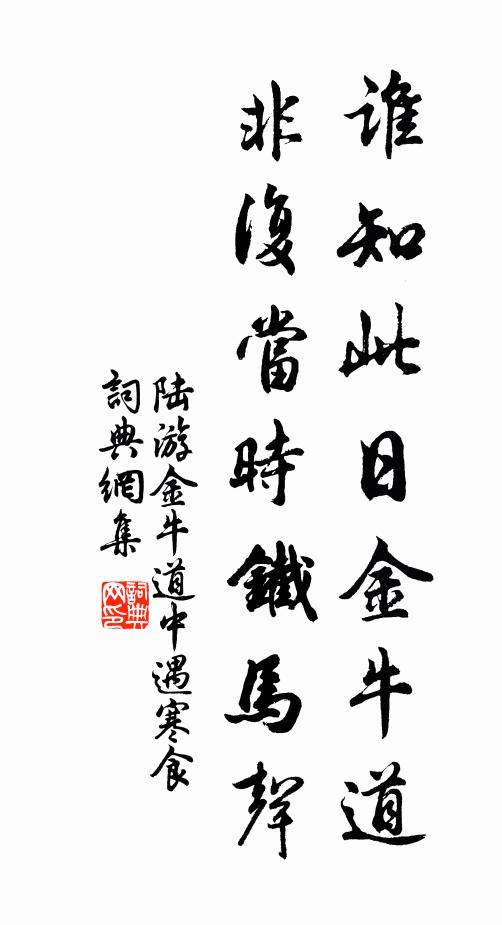 誰知此日金牛道
非復當時鐵馬聲
陆游金牛道中遇寒食
詞典網集
詞典網印